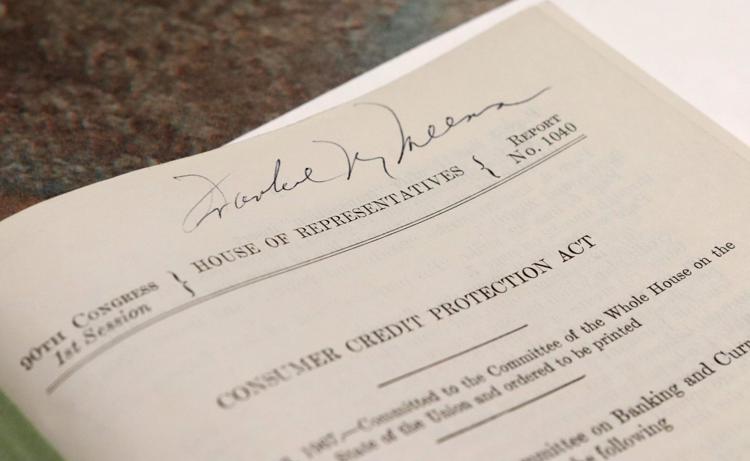 90TH CONGRESS
1st Session
} HOUSE OF REPRESENTATIVES {
REPORT
No. 1040
CONSUMER CREDIT PROTECTION ACT
1967.—Committed to the Committee of the Whole House on the
State of the Union and ordered to be printed
on Banking and
the following